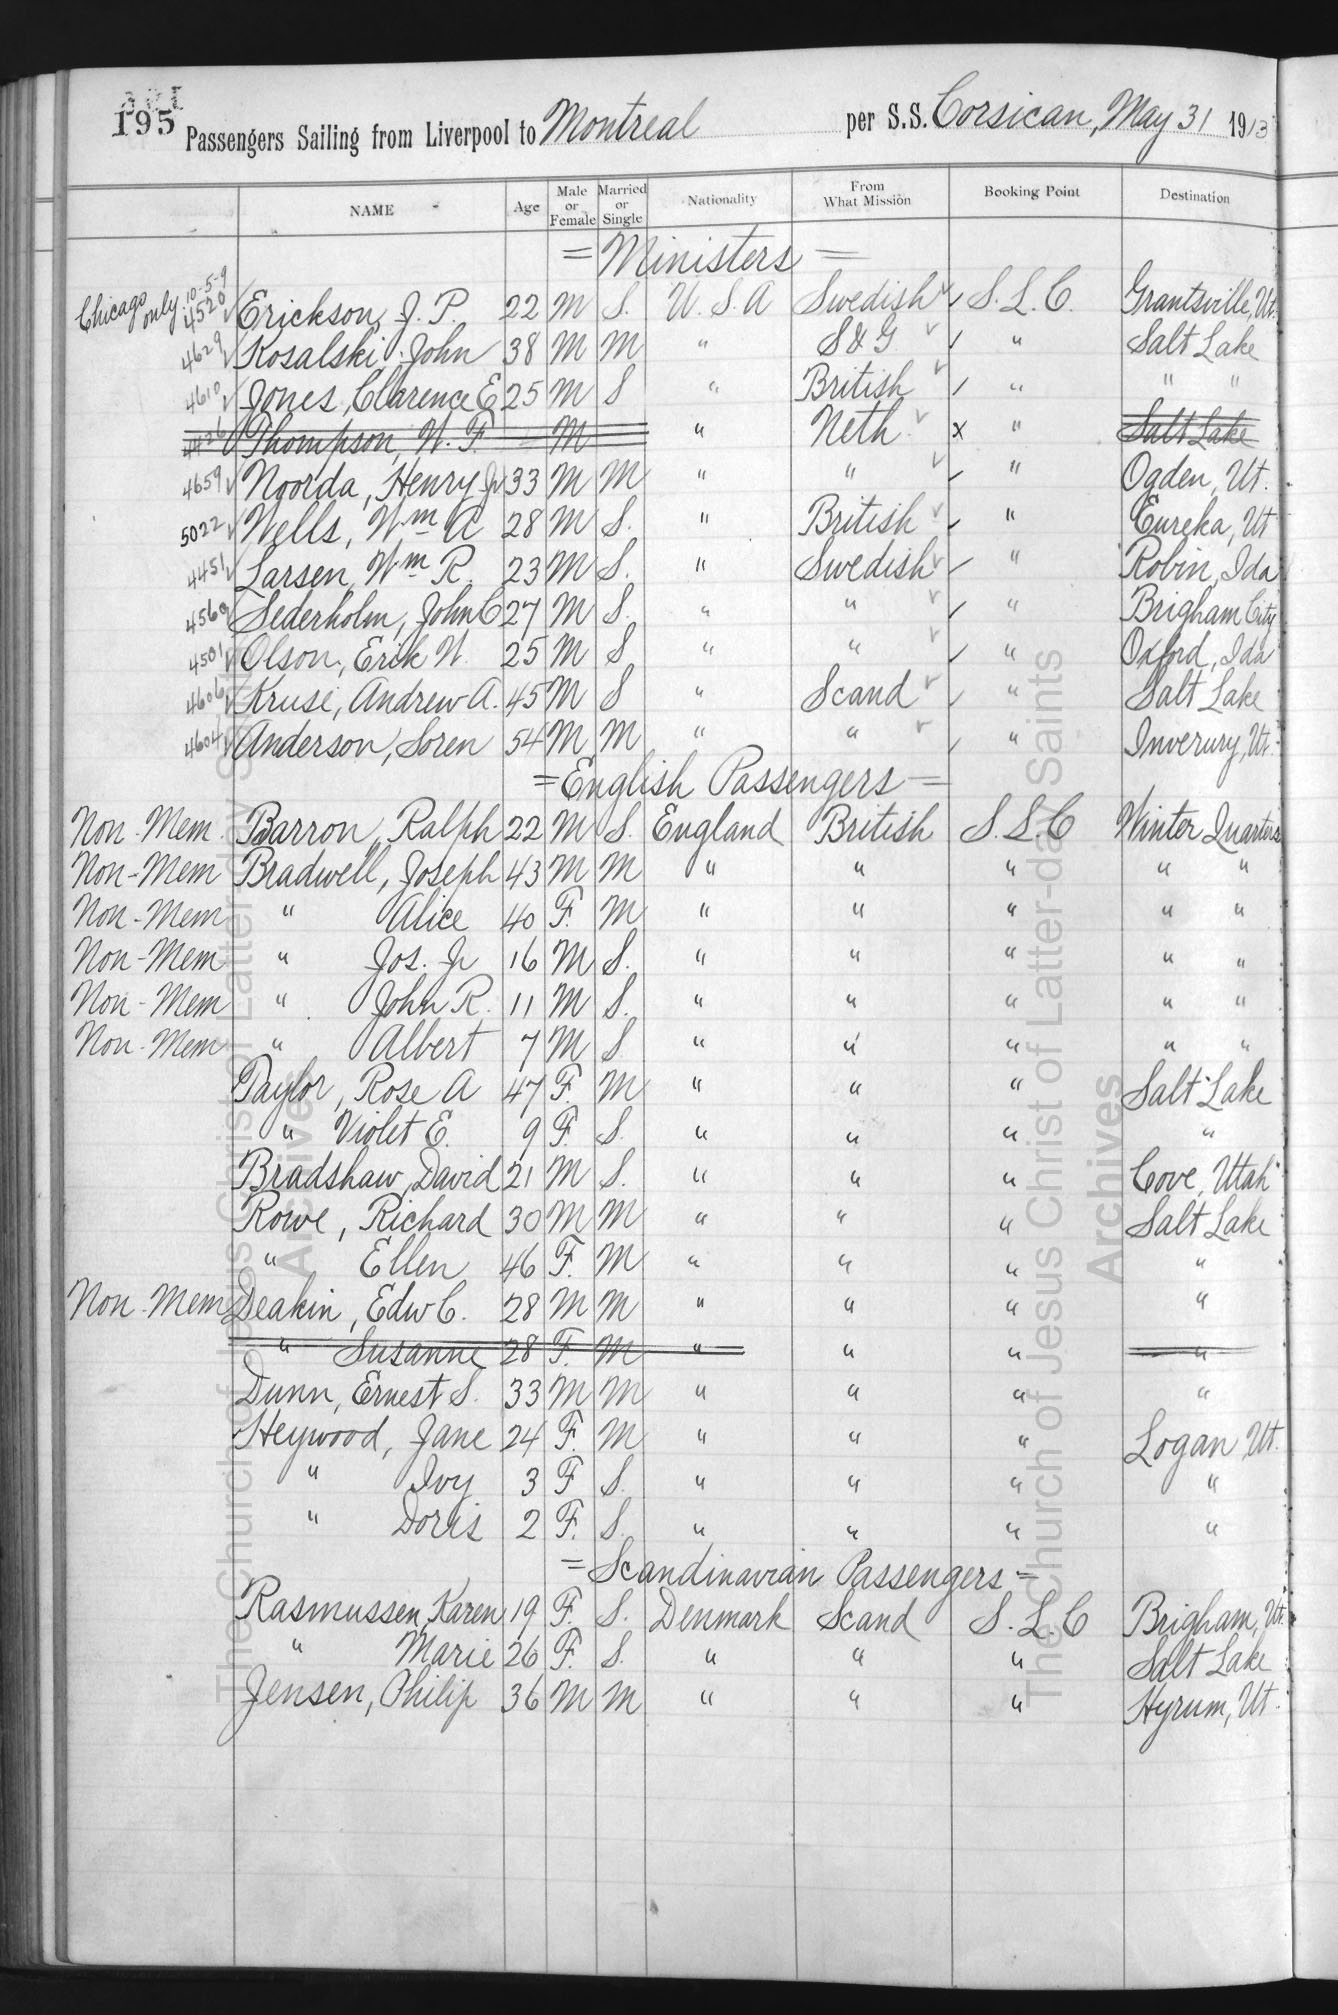 195
Passengers Sailing from Liverpool to Montreal per S.S. Corsican, May 31 1913
NAME Age Male or Female Married or Single Nationality From What Mission Booking Point Destination
= Ministers =
Chicago only 10-5-9 4520 Erickson, J. P. 22 M S. U. S. A Swedish S. L. C. Grantsville, Ut.
4629 Kosalski, John 38 M M " S & G " Salt Lake
4610 Jones, Clarence E 25 M S " British " " "
Thompson, W. F. M " Neth x " Salt Lake
4659 Noorda, Henry Jr 33 M M " " " Ogden, Ut.
5022 Wells, Wm A 28 M S. " British " Eureka, Ut
4451 Larsen, Wm R. 23 M S. " Swedish " Robin, Ida
4569 Sederholm, John C 27 M S. " " " Brigham City
4501 Olson, Erik W. 25 M S " " " Oxford, Ida
4606 Kruse, Andrew A. 45 M S " Scand " Salt Lake
4604 Anderson, Soren 54 M M " " " Inverury, Ut.
= English Passengers =
Non-Mem. Barron, Ralph 22 M S. England British S. L. C Winter Quarters
Non-Mem Bradwell, Joseph 43 M M " " " " "
Non-Mem " Alice 40 F. M " " " " "
Non-Mem " Jos. Jr 16 M S. " " " " "
Non-Mem " John R. 11 M S. " " " " "
Non-Mem " Albert 7 M S " " " " "
Taylor, Rose A 47 F. M " " " Salt Lake
" Violet E. 9 F. S. " " " "
Bradshaw, David 21 M S. " " " Cove, Utah
Rowe, Richard 30 M M " " " Salt Lake
" Ellen 46 F. M " " " "
Non-Mem Deakin, Edw C. 28 M M " " " "
" Susanne 28 F. M " " " "
Dunn, Ernest S. 33 M M " " " "
Heywood, Jane 24 F. M " " " Logan Ut.
" Ivy 3 F S. " " " "
" Doris 2 F. S. " " " "
= Scandinavian Passengers =
Rasmussen, Karen 19 F. S. Denmark Scand S. L. C Brigham, Ut.
" Marie 26 F. S. " " " Salt Lake
Jensen, Philip 36 M M " " " Hyrum, Ut.
The Church of Jesus Christ of Latter-day Saints
Archives
The Church of Jesus Christ of Latter-day Saints
Archives